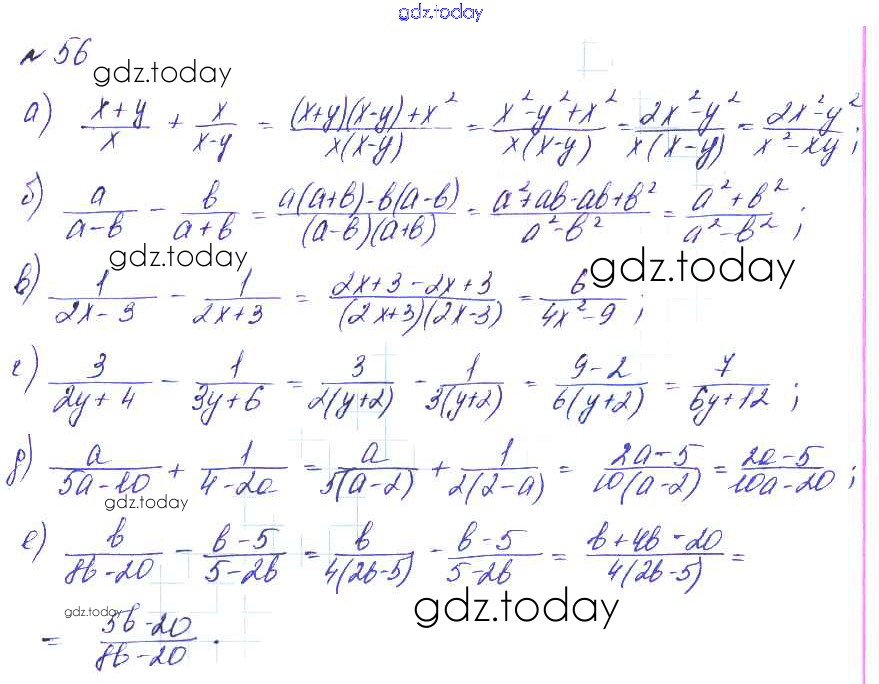 gdz.today
№ 56
gdz.today
а) (x+y)/x + x/(x-y) = ((x+y)(x-y)+x²)/(x(x-y)) = (x²-y²+x²)/(x(x-y)) = (2x²-y²)/(x(x-y)) = (2x²-y²)/(x²-xy);
б) a/(a-b) - b/(a+b) = (a(a+b)-b(a-b))/((a-b)(a+b)) = (a²+ab-ab+b²)/(a²-b²) = (a²+b²)/(a²-b²);
gdz.today gdz.today
в) 1/(2x-3) - 1/(2x+3) = (2x+3-2x+3)/((2x+3)(2x-3)) = 6/(4x²-9);
г) 3/(2y+4) - 1/(3y+6) = 3/(2(y+2)) - 1/(3(y+2)) = (9-2)/(6(y+2)) = 7/(6y+12);
д) a/(5a-10) + 1/(4-2a) = a/(5(a-2)) + 1/(2(2-a)) = (2a-5)/(10(a-2)) = (2a-5)/(10a-20);
gdz.today
е) b/(8b-20) - (b-5)/(5-2b) = b/(4(2b-5)) - (b-5)/(5-2b) = (b+4b-20)/(4(2b-5)) =
gdz.today gdz.today
= (5b-20)/(8b-20).